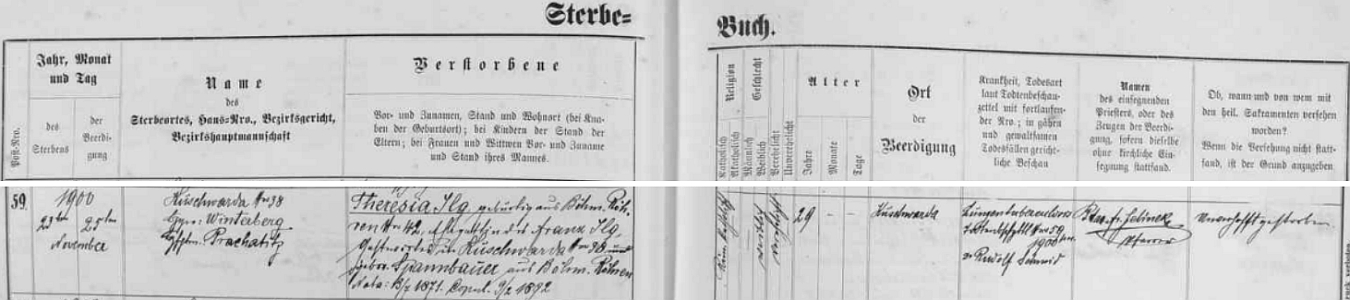 Sterbe=
Buch.
Post-Nro.
Jahr, Monat
und Tag
des
Sterbens
der
Beerdi-
gung
Name
des
Sterbeortes, Haus-Nro., Bezirksgericht,
Bezirkshauptmannschaft
Verstorbene
Vor- und Zunamen, Stand und Wohnort (bei Kna-
ben der Geburtsort); bei Kindern der Stand der
Eltern; bei Frauen und Wittwen Vor- und Zuname
und Stand ihres Mannes.
Religion
Katholisch
Akatholisch
Geschlecht
Männlich
Weiblich
Verehelicht
Unverehelicht
Alter
Jahre
Monate
Tage
Ort
der
Beerdigung
Krankheit, Todesart
laut Todtenbeschau-
zettel mit fortlaufen-
der Nro.; in gähen
und gewaltsamen
Todesfällen gericht-
liche Beschau
Namen
des einsegnenden
Priesters, oder des
Zeugen der Beerdi-
gung, sofern dieselbe
ohne kirchliche Ein-
segnung stattfand.
Ob, wann und von wem mit
den heil. Sakramenten versehen
worden?
Wenn die Versehung nicht statt-
fand, ist der Grund anzugeben
59.
1900
23ten
25ten
November
Kuschwarda Nro 38
Winterberg
Prachatitz
Theresia Ilg, gebürtig aus Böhm. Röh-
ren Nro 42, Ehegattin des Franz Ilg,
in Kuschwarda Nro 38 und
gebor. Spannbauer aus Böhm. Röhren
Nata: 1871. Copul. 1892
weiblich
verehelicht
29 – –
Kuschwarda
Nro 59
1900
Rudolf Schmid
Fr. Jelinek
Pfarrer
Unverhofft gestorben.